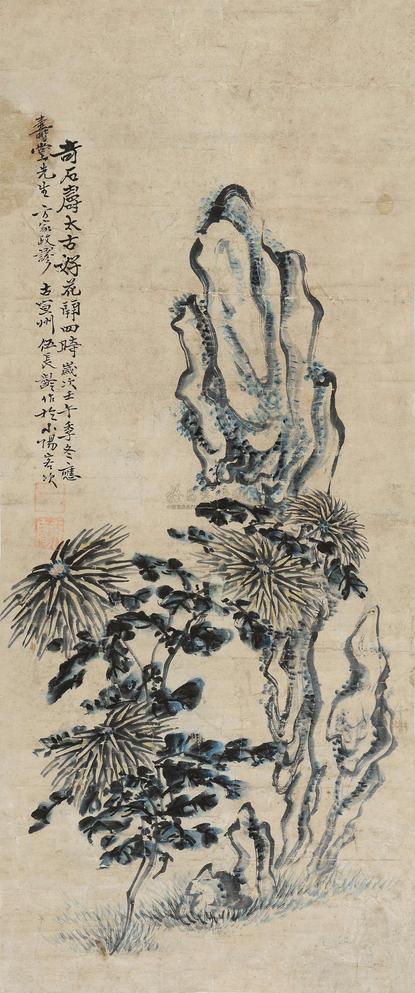 奇石壽太古好花開四時歲次壬午季冬應
壽堂先生方家政謬古宣州伍長齡作於小陽客次